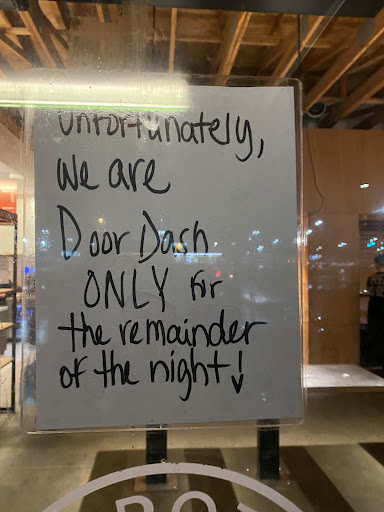 Unfortunately,
we are
Door Dash
ONLY for
the remainder
of the night!